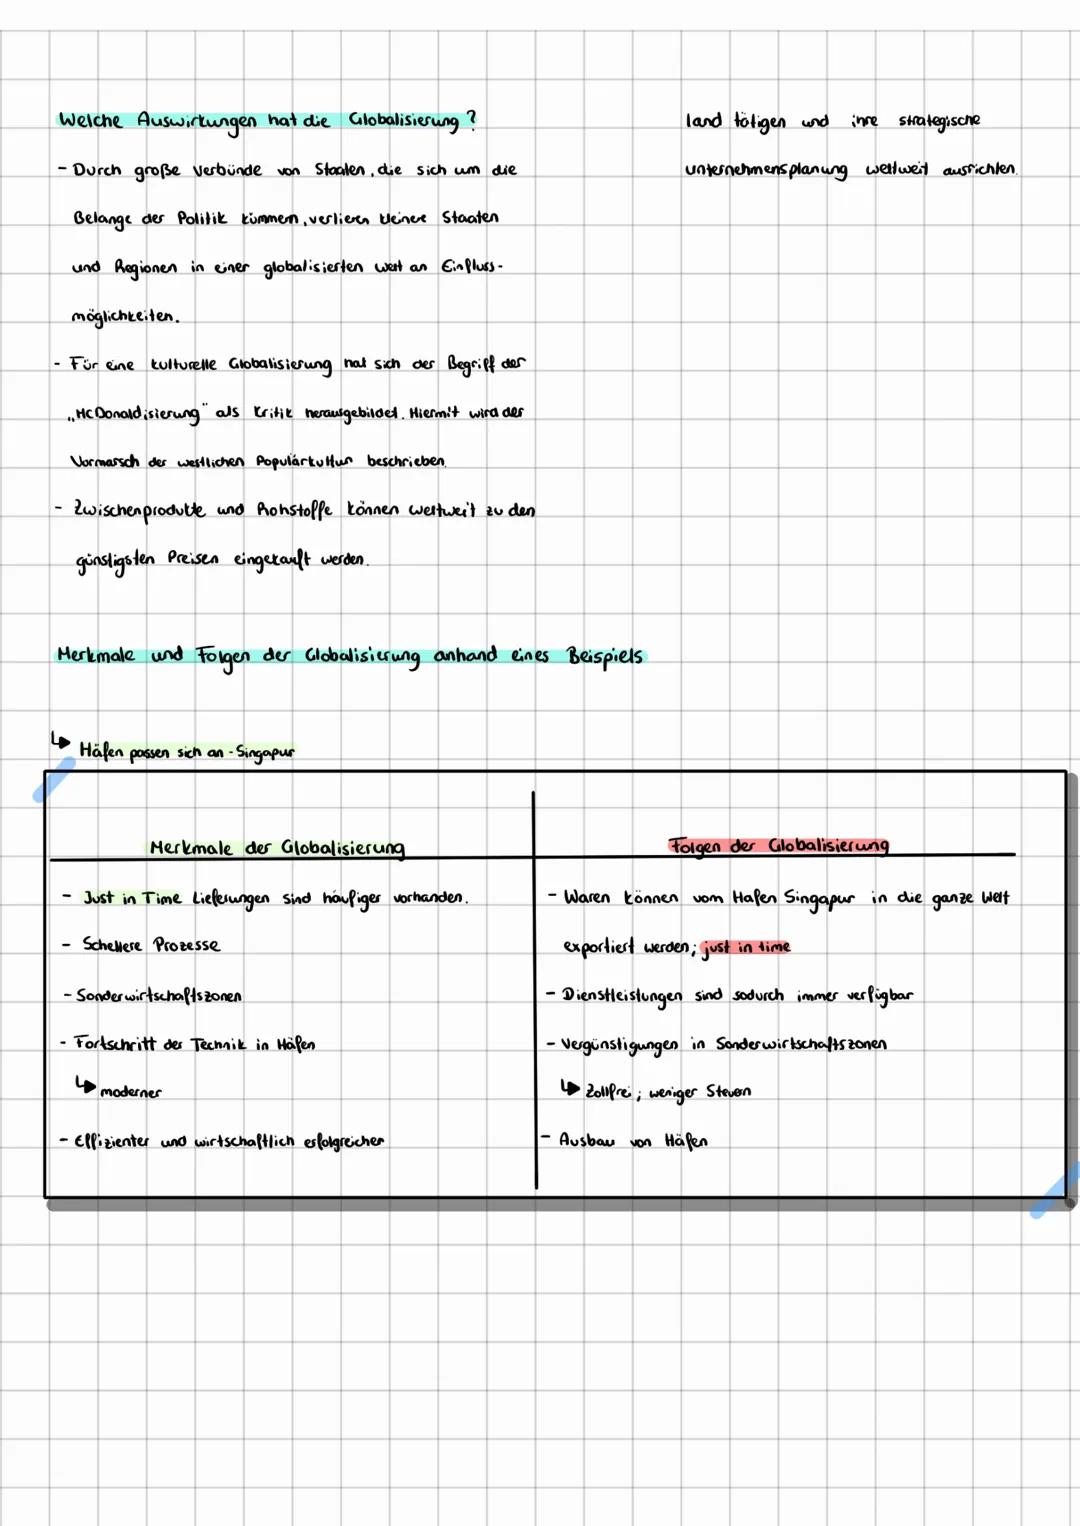 Welche Auswirkungen hat die Globalisierung?
- Durch große Verbünde von Staaten, die sich um die
Belange der Politik kümmern, verlieren kleinere Staaten
und Regionen in einer globalisierten Welt an Einfluss-
möglichkeiten.
- Für eine kulturelle Globalisierung hat sich der Begriff der
„McDonaldisierung" als Kritik herausgebildet. Hiermit wird der
Vormarsch der westlichen Populärkultur beschrieben.
- Zwischenprodukte und Rohstoffe können weltweit zu den
günstigsten Preisen eingekauft werden.
land tätigen und ihre strategische
unternehmensplanung weltweit ausrichten.
Merkmale und Folgen der Globalisierung anhand eines Beispiels
↳ Häfen passen sich an - Singapur
Merkmale der Globalisierung
- Just in Time Lieferungen sind häufiger vorhanden.
- Schellere Prozesse
- Sonderwirtschaftszonen
- Fortschritt der Technik in Häfen
↳ moderner
- Effizienter und wirtschaftlich erfolgreicher
Folgen der Globalisierung
- Waren können vom Hafen Singapur in die ganze Welt
exportiert werden; just in time
- Dienstleistungen sind sodurch immer verfügbar
- Vergünstigungen in Sonderwirtschaftszonen
↳ Zollfrei; weniger Steuern
- Ausbau von Häfen